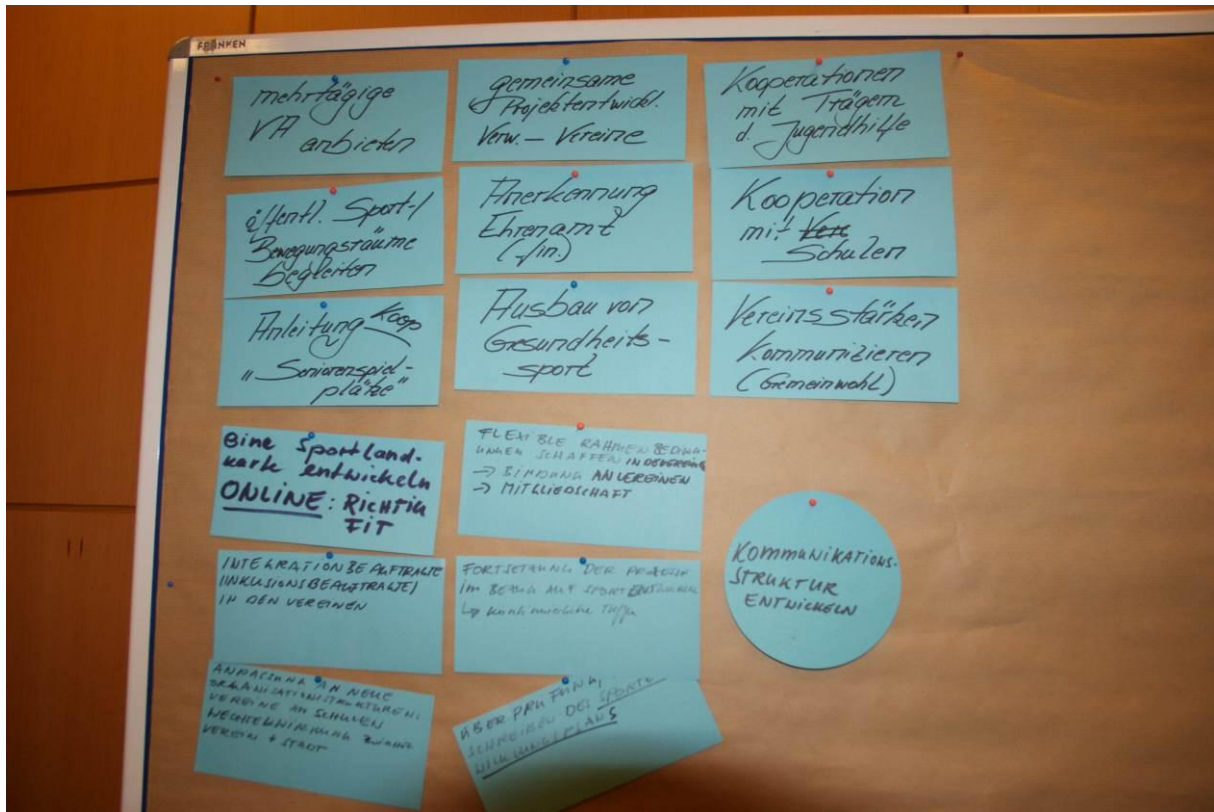 FRANKEN
mehrtägige
VA
anbieten
gemeinsame
Projektentwickl.
Verw. – Vereine
Kooperationen
mit Trägern
d. Jugendhilfe
öffentl. Sport-/
Bewegungsräume
begleiten
Anerkennung
Ehrenamt
(-/in.)
Kooperation
mit
Schulen
Anleitung Koop
"Seniorenspiel-
plätze"
Ausbau von
Gesundheits-
sport
Vereinsstärken
Kommunizieren
(Gemeinwohl)
eine Sportland-
karte entwickeln
ONLINE: RICHTIG
FIT
FLEXIBLE RAHMENBEDING-
UNGEN SCHAFFEN IN DEN VEREINEN
→ BINDUNG AN VEREINEN
→ MITGLIEDSCHAFT
KOMMUNIKATIONS-
STRUKTUR
ENTWICKELN
INTEGRATIONBEAUFTRAGTE
INKLUSIONSBEAUFTRAGTE/
IN DEN VEREINEN
FORTSETZUNG DER PROZESSE
IM BEZUG AUF
↳ kontinuierliche
ANPASSUNG AN NEUE
ORGANISATIONSSTRUKTUREN:
VEREINE AN SCHULEN
WECHSELWIRKUNG
VEREIN + STADT
ÜBERPRÜFUNG,
SCHREIBEN DES SPORTENT-
WICKLUNGSPLANS